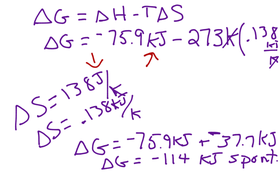 ΔG = ΔH - TΔS
ΔG = -75.9 kJ - 273K(.138 kJ/K
ΔS = 138 J/K
ΔS = .138 kJ/K
ΔG = -75.9 KJ + -37.7 KJ
ΔG = -114 KJ spont